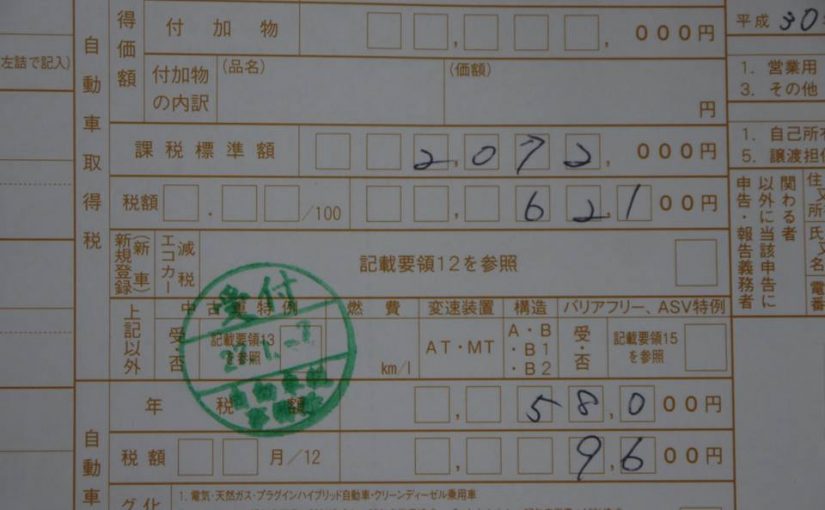 得価額 付加物 , , 000円
平成 30
(左詰で記入)
付加物の内訳 (品名) (価額) 円
1. 営業用
3. その他
自動車取得税
課税標準額 2,072,000円
1. 自己所
5. 譲渡担
税額 . /100 , 62,100円
申告・報告義務者
以外に当該申告に
関わる者
住又所
氏又名
電番
新規登録(新車) エコカー減税 記載要領12を参照
上記以外 中古車特例 燃費 変速装置 構造 バリアフリー、ASV特例
受・否 記載要領13を参照 km/l AT・MT A・B・B1・B2 受・否 記載要領15を参照
受付
年税額 , 58,000円
自動車
税額 月/12 , 9,600円
1. 電気・天然ガス・プラグインハイブリッド自動車・クリーンディーゼル乗用車
グ化